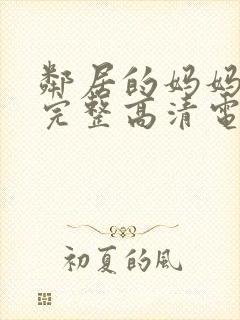 鄰居的妈妈
完整高清電
初夏的風